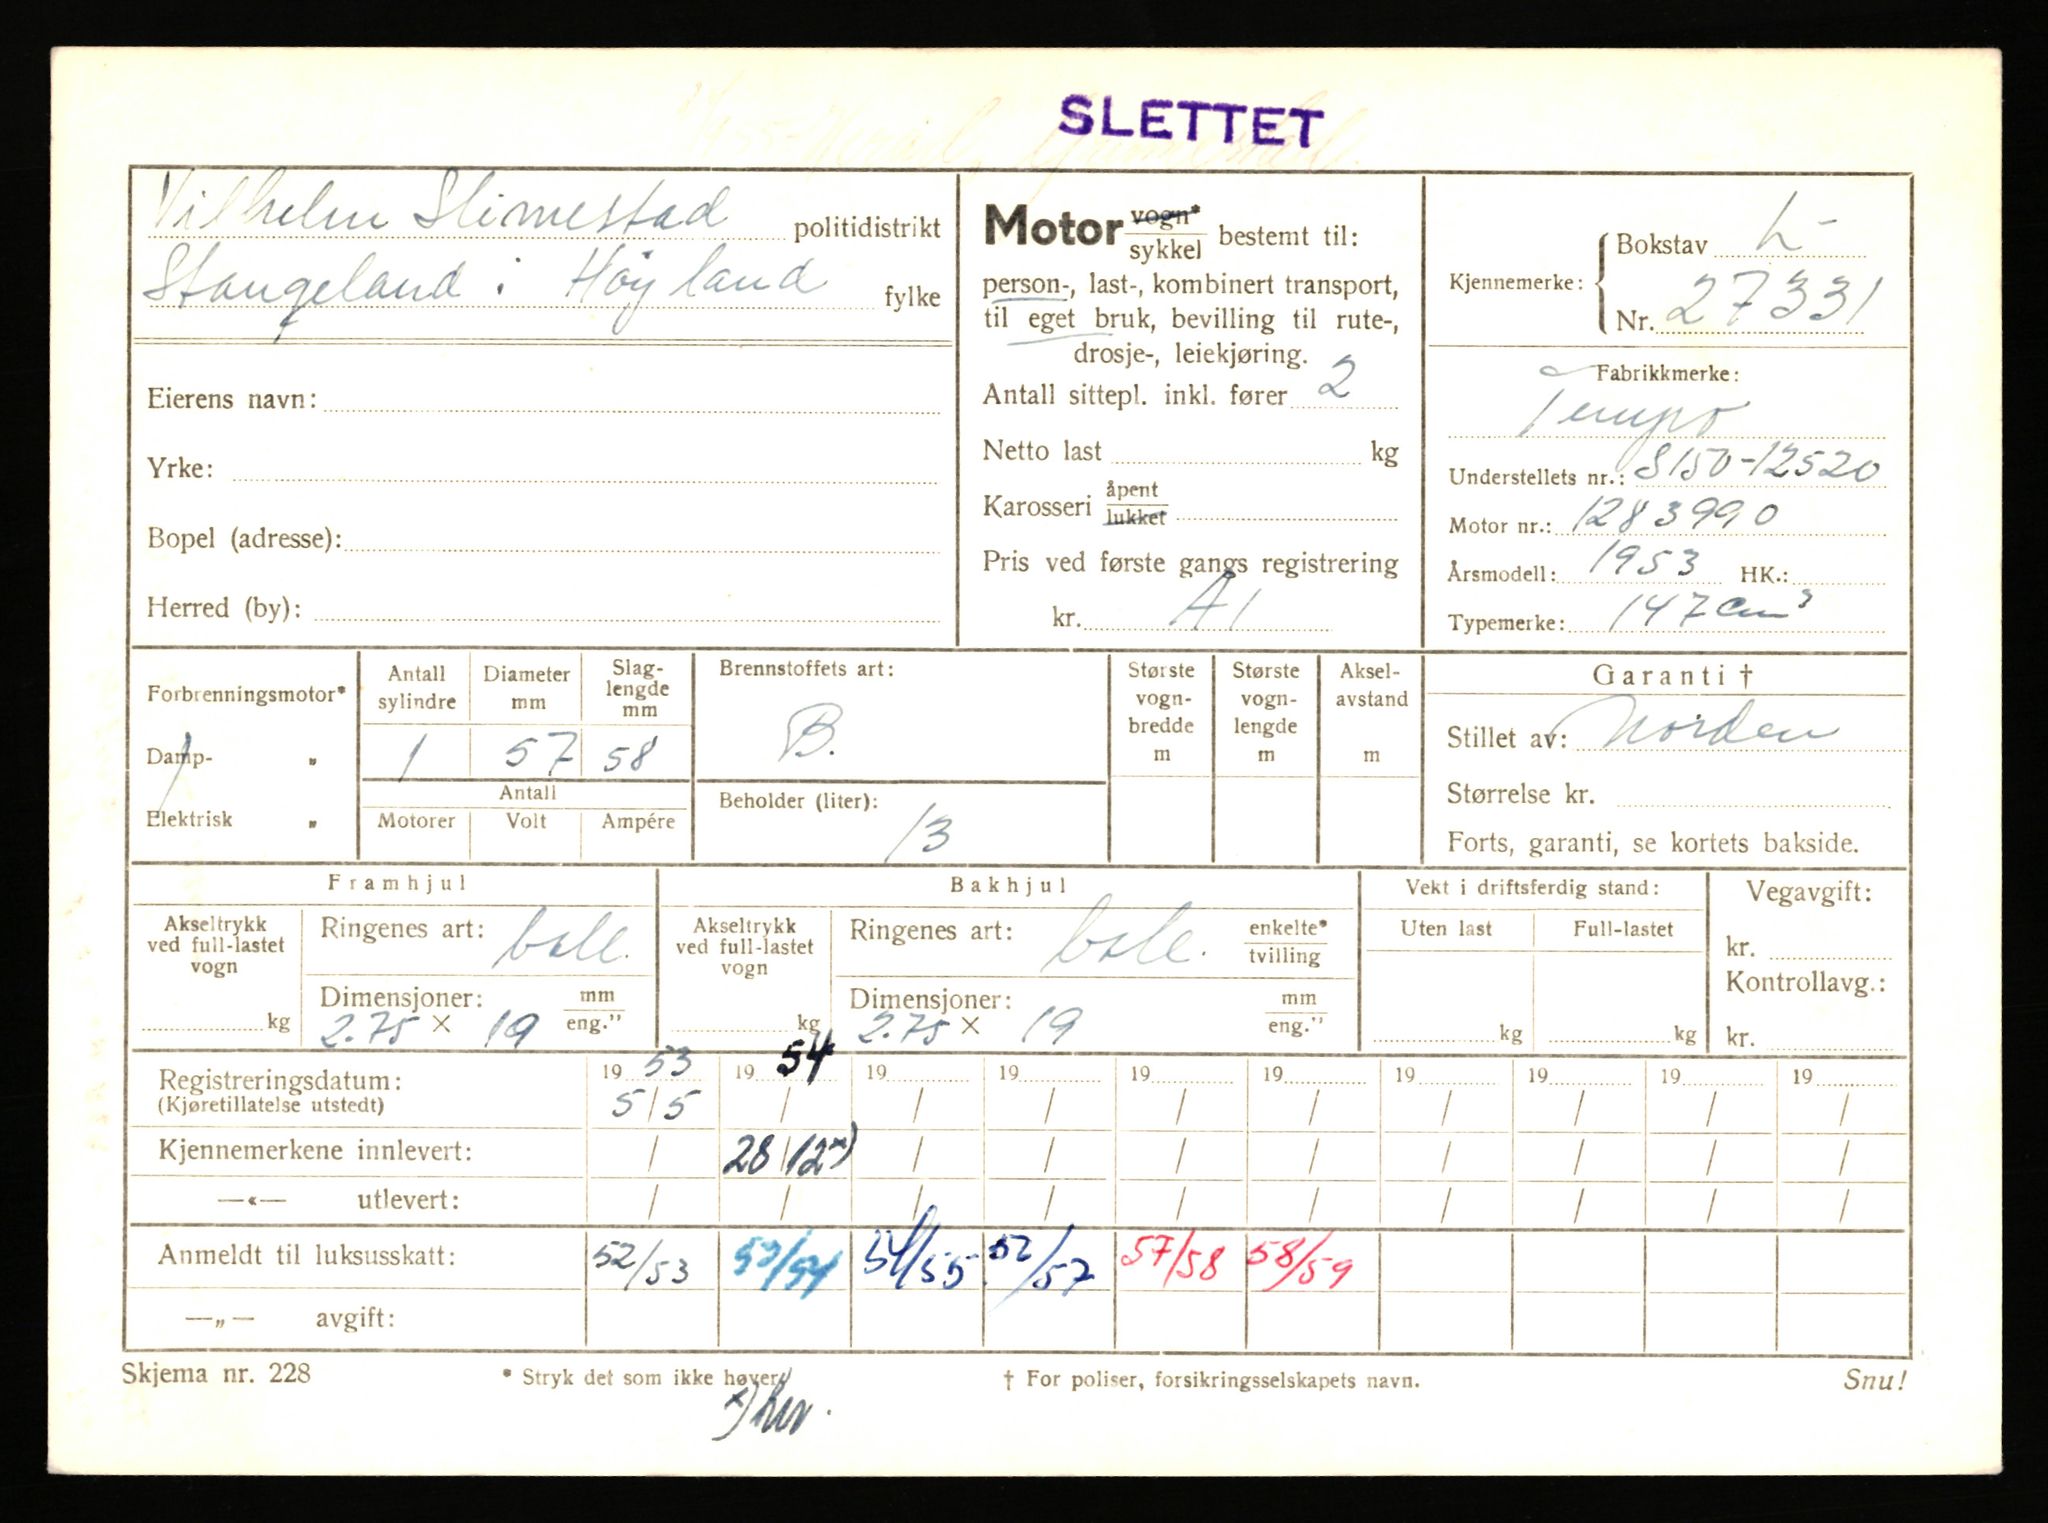 SLETTET
Vilhelm Slimestad politidistrikt
Stangeland i Høyland fylke
Eierens navn:
Yrke:
Bopel (adresse):
Herred (by):
Motor vogn* sykkel bestemt til:
person-, last-, kombinert transport,
til eget bruk, bevilling til rute-,
drosje-, leiekjøring.
Antall sittepl. inkl. fører 2
Netto last kg
Karosseri åpent lukket
Pris ved første gangs registrering
kr. A1
Kjennemerke: Bokstav L-
Nr. 27331
Fabrikkmerke:
Tempo
Understellets nr.: S150-12520
Motor nr.: 1283990
Årsmodell: 1953 HK.:
Typemerke: 147 cm³
Forbrenningsmotor*
Damp- „
Elektrisk „
Antall sylindre Diameter mm Slag-lengde mm
1 57 58
Antall
Motorer Volt Ampére
Brennstoffets art:
B.
Beholder (liter):
13
Største vogn-bredde m
Største vogn-lengde m
Aksel-avstand m
Garanti †
Stillet av: Norden
Størrelse kr.
Forts, garanti, se kortets bakside.
Framhjul
Akseltrykk ved full-lastet vogn
kg
Ringenes art: ball.
Dimensjoner: mm eng."
2.75 × 19
Bakhjul
Akseltrykk ved full-lastet vogn
kg
Ringenes art: ball. enkelte* tvilling
Dimensjoner: mm eng."
2.75 × 19
Vekt i driftsferdig stand:
Uten last Full-lastet
kg kg
Vegavgift:
kr.
Kontrollavg.:
kr.
Registreringsdatum: 19 53 19 54 19 19 19 19 19 19 19 19
(Kjøretillatelse utstedt) 5/5 / / / / / / / / /
Kjennemerkene innlevert: / 28/12×) / / / / / / / /
—«— utlevert: / / / / / / / / / /
Anmeldt til luksusskatt: 52/53 53/54 54/55 52/57 57/58 58/59
—„— avgift:
Skjema nr. 228 * Stryk det som ikke høver. † For poliser, forsikringsselskapets navn. Snu!